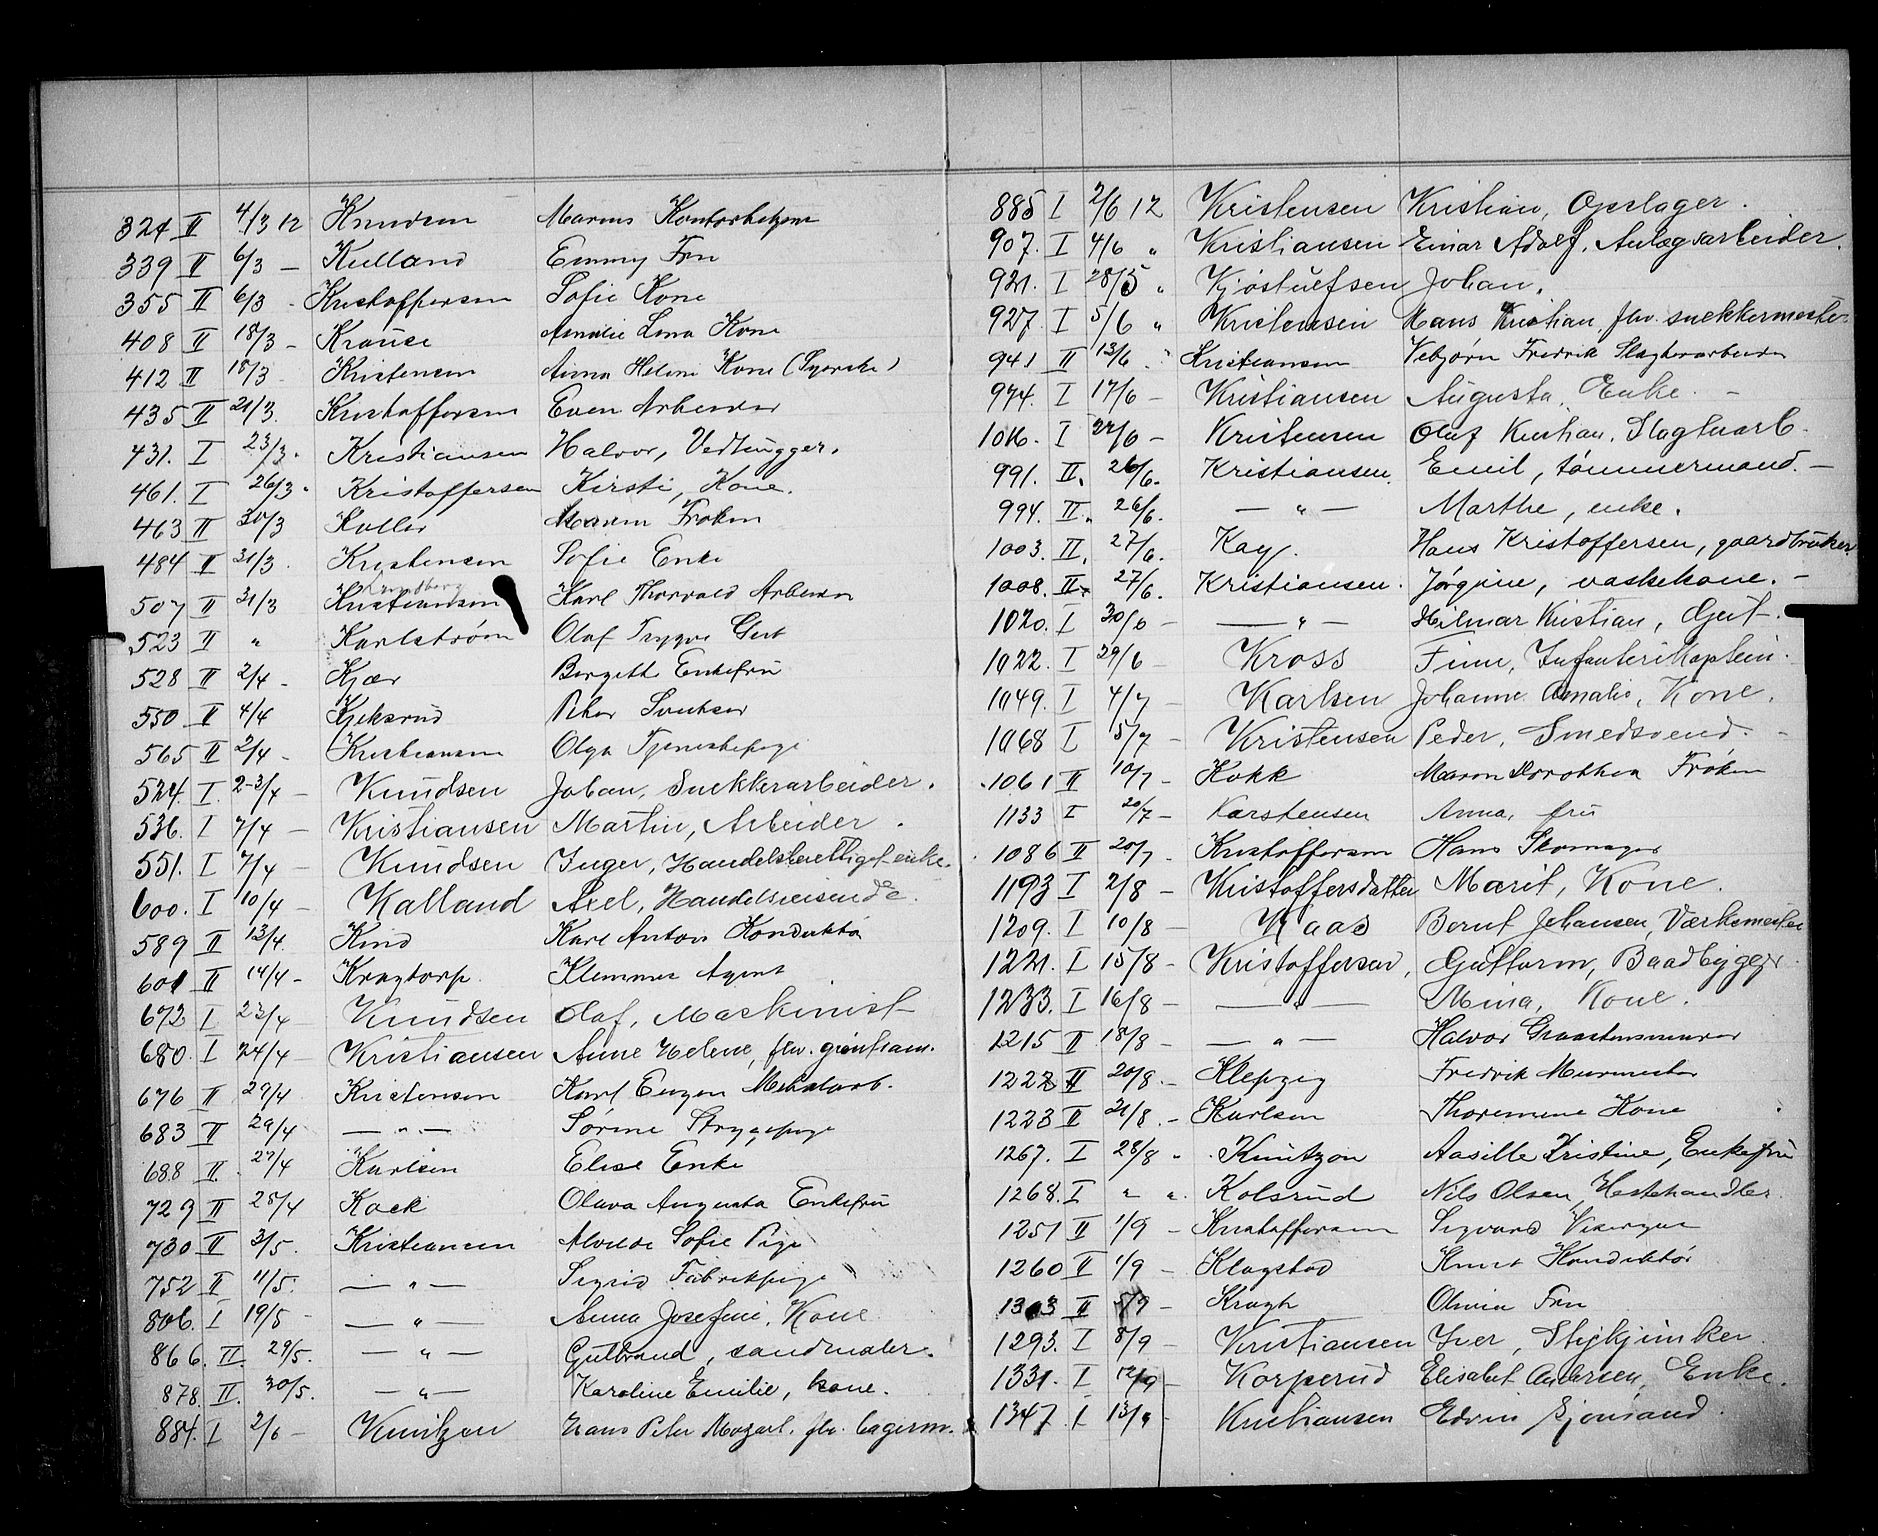 324 II 4/3 12 Knudsen Marius Kontorbetjent
339 II 6/3 — Kulland Emmy Fru
355 II 6/3 - Kristoffersen Sofie Kone
408 II 18/3 - Krause Amalie Lina Kone
412 II 18/3 Kristensen Anna Helene Kone (Syerske)
435 II 21/3. Kristoffersen Even Arbeider
431. I 23/3. Kristiansen Halvor, Vedhugger.
461. I 26/3. Kristoffersen Kirsti, Kone.
463 II 30/3 Koller Maren Frøken
484 II 31/3. Kristensen Sofie Enke
507 II 31/3 Kristiansen Karl Thorvald Arbeider
523 II " Karlstrøm Olaf Trygve Gut
528 II 2/4 - Kjær Bergith Enkefru
550 II 4/4 Kjeksrud Peter
565 II 2/4 - Kristiansen Olga Tjenestepige
524. I. 2-3/4 — Knudsen Johan, Snekkerarbeider.
536. I 7/4 — Kristiansen Martin, Arbeider.
551. I 7/4 — Knudsen Inger, Handelsberettiget enke.
600. I 10/4 — Kalland Axel, Handelsreisende.
589 II 13/4. Kind Karl Anton Konduktør
601 II 14/4 - Kragtorp. Klemmet Agent
672 I 23/4 — Knudsen Olaf, Maskinist
680. I 24/4 — Kristiansen Anne Helene, fhv.
676 II 27/4 Kristensen Karl Eugen Metalarb.
683 II 29/4 — " — Sørine Strygepige
688 II. 27/4 Karlsen Elise Enke
729 II 28/4 Kock Olava Augusta Enkefru
730 II 3/5. Kristiansen Alvilde Sofie Pige
752 II 11/5. — " — Sigrid Fabrikpige
806. I 19/5 - — " — Anna Josefine, Kone
866. II. 29/5. — " — Gulbrand, sandmaler.
878. II. 30/5. — " — Karoline Emilie, kone.
884. I 2/6 — Knutzen Hans Peter Mozart, fhv. lagerm.
885 I 2/6 12 Kristensen Kristian, Opslager.
907. I 4/6 " Kristiansen Einar Adolf, Anlægsarbeider.
921. I 28/5 " Kjøstulfsen Johan.
927. I 5/6 " Kristensen Hans Kristian, fhv. snekkermester
941 II 13/6 . Kristiansen Vebjørn Fredrik Slagterarbeider
974. I 17/6 — Kristiansen Augusta, Enke. —
1016. I 22/6 — Kristensen Olaf Kristian, Slagterarb.
991. II. 26/6. Kristiansen. Emil, tømmermand. —
994. II. 26/6. — " — Marthe, enke.
1003. II. 27/6. Kay. Hans Kristoffersen, gaardbruker.
1008. II. 27/6. Kristiansen. Jørgine, vaskekone. —
1020. I 30/6 — — " — Hilmar Kristian, Gut.
1022. I 29/6 — Kross Finn, Infanterikaptein.
1049. I 4/7 — Karlsen Johanne Amalie, Kone.
1068 I 5/7 — Kristensen Peder, Smedsvend. -
1061 II 10/7 — Kokk Maren Dorothea Frøken
1133 I 20/7 — Karstensen Anna, fru
1086 II 20/7. Kristoffersen Hans Skomager
1193 I 2/8 — Kristoffersdatter Marit, Kone.
1209. I 10/8 — Kaas Bernt Johansen, Værksmester
1221. I 15/8 - Kristoffersen, Guttorm, Baadbygger.
1233. I 16/8 — — " — Mina, Kone.
1215 II 18/8 — — " — Halvor Graastensmurer
1222 II 20/8. — Klepzig Fredrik Murmester
1223 II 21/8. — Karlsen Thoremine Kone
1267. I 23/8 " Knutzon Aasille Kristine, Enkefru
1268. I " " Kolsrud Nils Olsen, Hestehandler
1251 II 1/9 — Kristoffersen Sigvard Visergut
1260 II 1/9 — Klagstad Knut Konduktør
1303 II 5/9 — Kragh Olivia Fru
1293. I 8/9 — Kristiansen Iver,
1331. I 12/9 — Korperud Elisabet Andersen, Enke.
1347 I 13/9 - Kristiansen Edvin Sjømand.